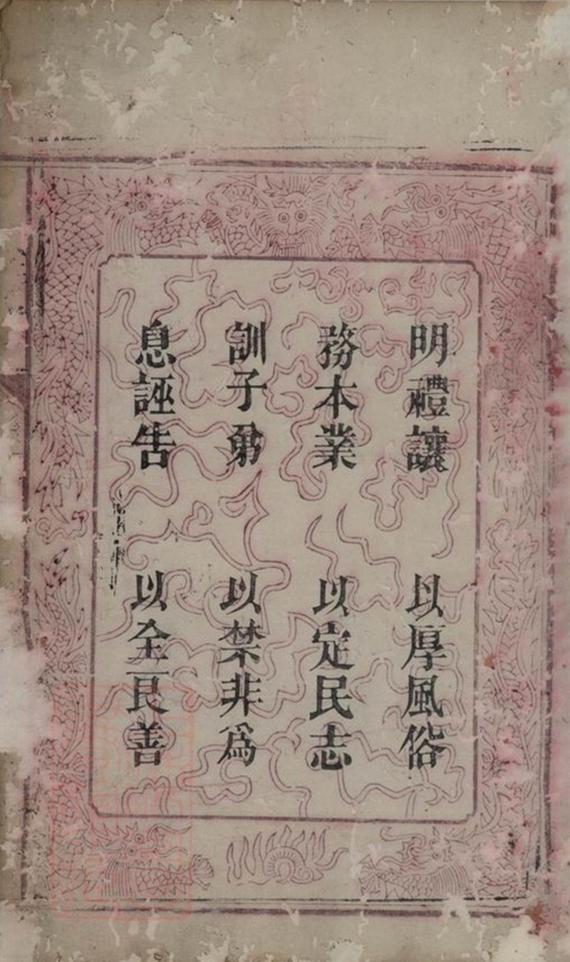 明禮讓 以厚風俗
務本業 以定民志
訓子弟 以禁非爲
息誣告 以全良善